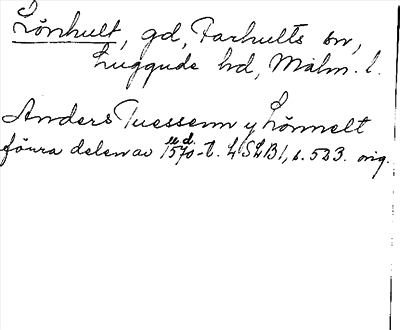 Lönhult, gd, Farhults sn,
Luggude hd, Malm. l.
Anders Tuessenn y Lönnelt
förra delen av 1570-t. LSLB1, s. 523. orig.